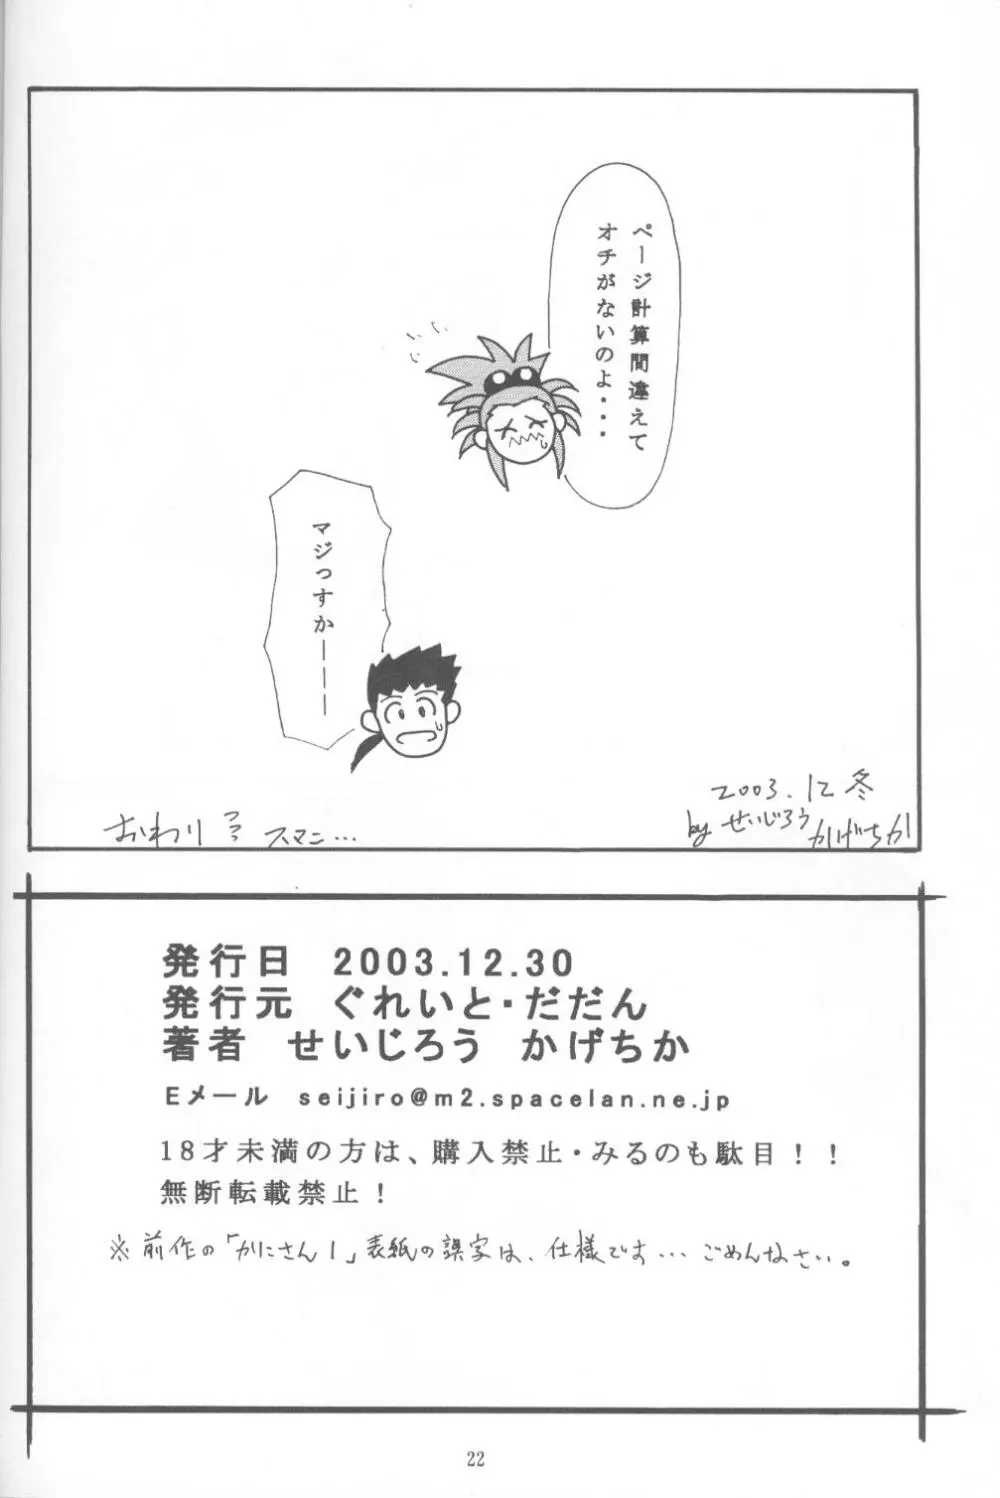 ページ計算間違えて
オチがないのよ・・・
マジっすかーーー
おわり
スマニ…
2003.12 冬
by せいじろう
かげちか
発行日 2003.12.30
発行元 ぐれいと・だだん
著者 せいじろう かげちか
Eメール seijiro@m2.spacelan.ne.jp
18才未満の方は、購入禁止・みるのも駄目！！
無断転載禁止！
※前作の「かにさん1」表紙の誤字は、仕様です…ごめんなさい。
22